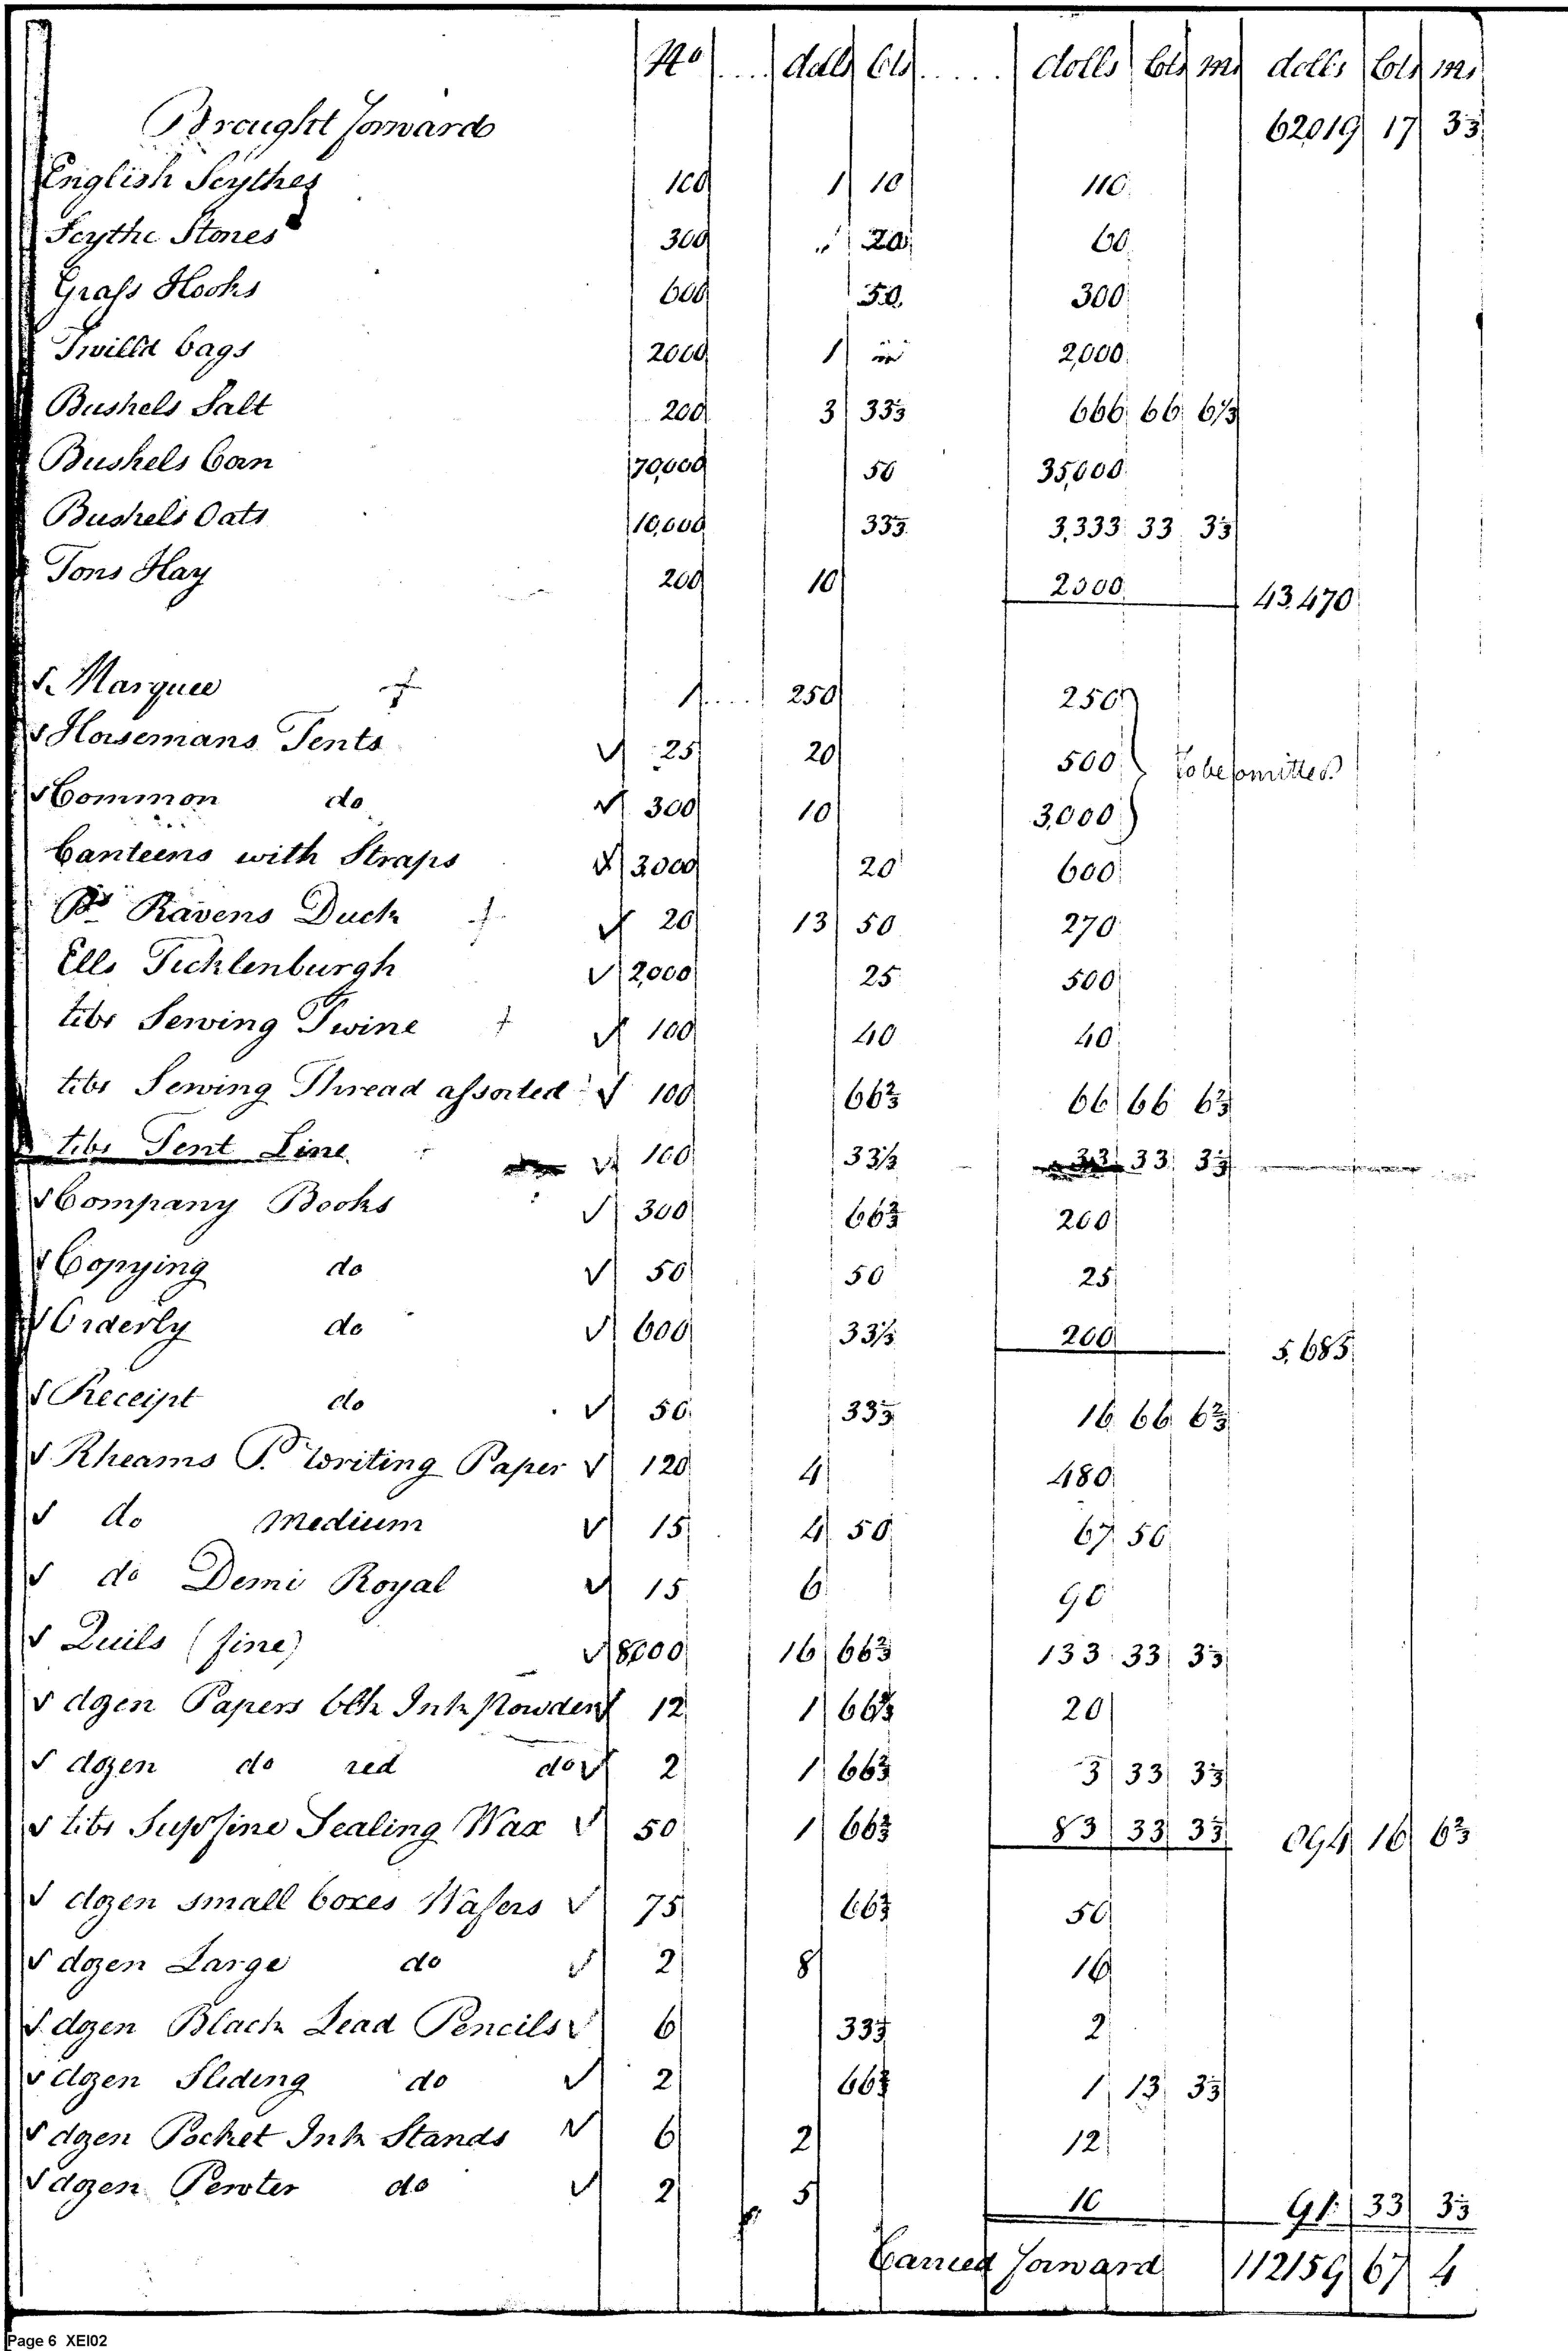 No .... dolls Cts ..... dolls Cts ms dolls Cts ms
Brought forward 62019 17 3⅓
English Scythes 100 1 10 110
Scythe Stones 300 " 20 60
Grass Hooks 600 50 300
Twill'd bags 2000 1 " 2,000
Bushels Salt 200 3 33⅓ 666 66 6⅓
Bushels Corn 70,000 50 35,000
Bushels Oats 10,000 33⅓ 3,333 33 3⅓
Tons Hay 200 10 2000 43,470
√ Marquee + 1 .... 250 250
√ Horsemans Tents √ 25 20 500 to be omitted
√ Common do √ 300 10 3,000
Canteens with Straps √ 3,000 20 600
Ps Ravens Duck + √ 20 13 50 270
Ells Ticklenburgh √ 2,000 25 500
lbs Sewing Twine + √ 100 40 40
lbs Sewing Thread assorted √ 100 66⅔ 66 66 6⅔
lbs Tent Line √ 100 33⅓ 33 33 3⅓
√ Company Books √ 300 66⅔ 200
√ Copying do √ 50 50 25
√ Orderly do √ 600 33⅓ 200 5,685
√ Receipt do √ 50 33⅓ 16 66 6⅔
√ Rheams P. Writing Paper √ 120 4 480
√ do Medium √ 15 4 50 67 50
√ do Demi Royal √ 15 6 90
√ Quils (fine) √ 8,000 16 66⅔ 133 33 3⅓
√ dozen Papers blk Ink Powder √ 12 1 66⅔ 20
√ dozen do red do √ 2 1 66⅔ 3 33 3⅓
√ lbs Supfine Sealing Wax √ 50 1 66⅔ 83 33 3⅓ 894 16 6⅔
√ dozen small boxes Wafers √ 75 66⅔ 50
√ dozen Large do √ 2 8 16
√ dozen Black Lead Pencils √ 6 33⅓ 2
√ dozen Sliding do √ 2 66⅔ 1 13 3⅓
√ dozen Pocket Ink Stands √ 6 2 12
√ dozen Pewter do √ 2 5 10 91 33 3⅓
Carried forward 112159 67 4
Page 6 XEI02